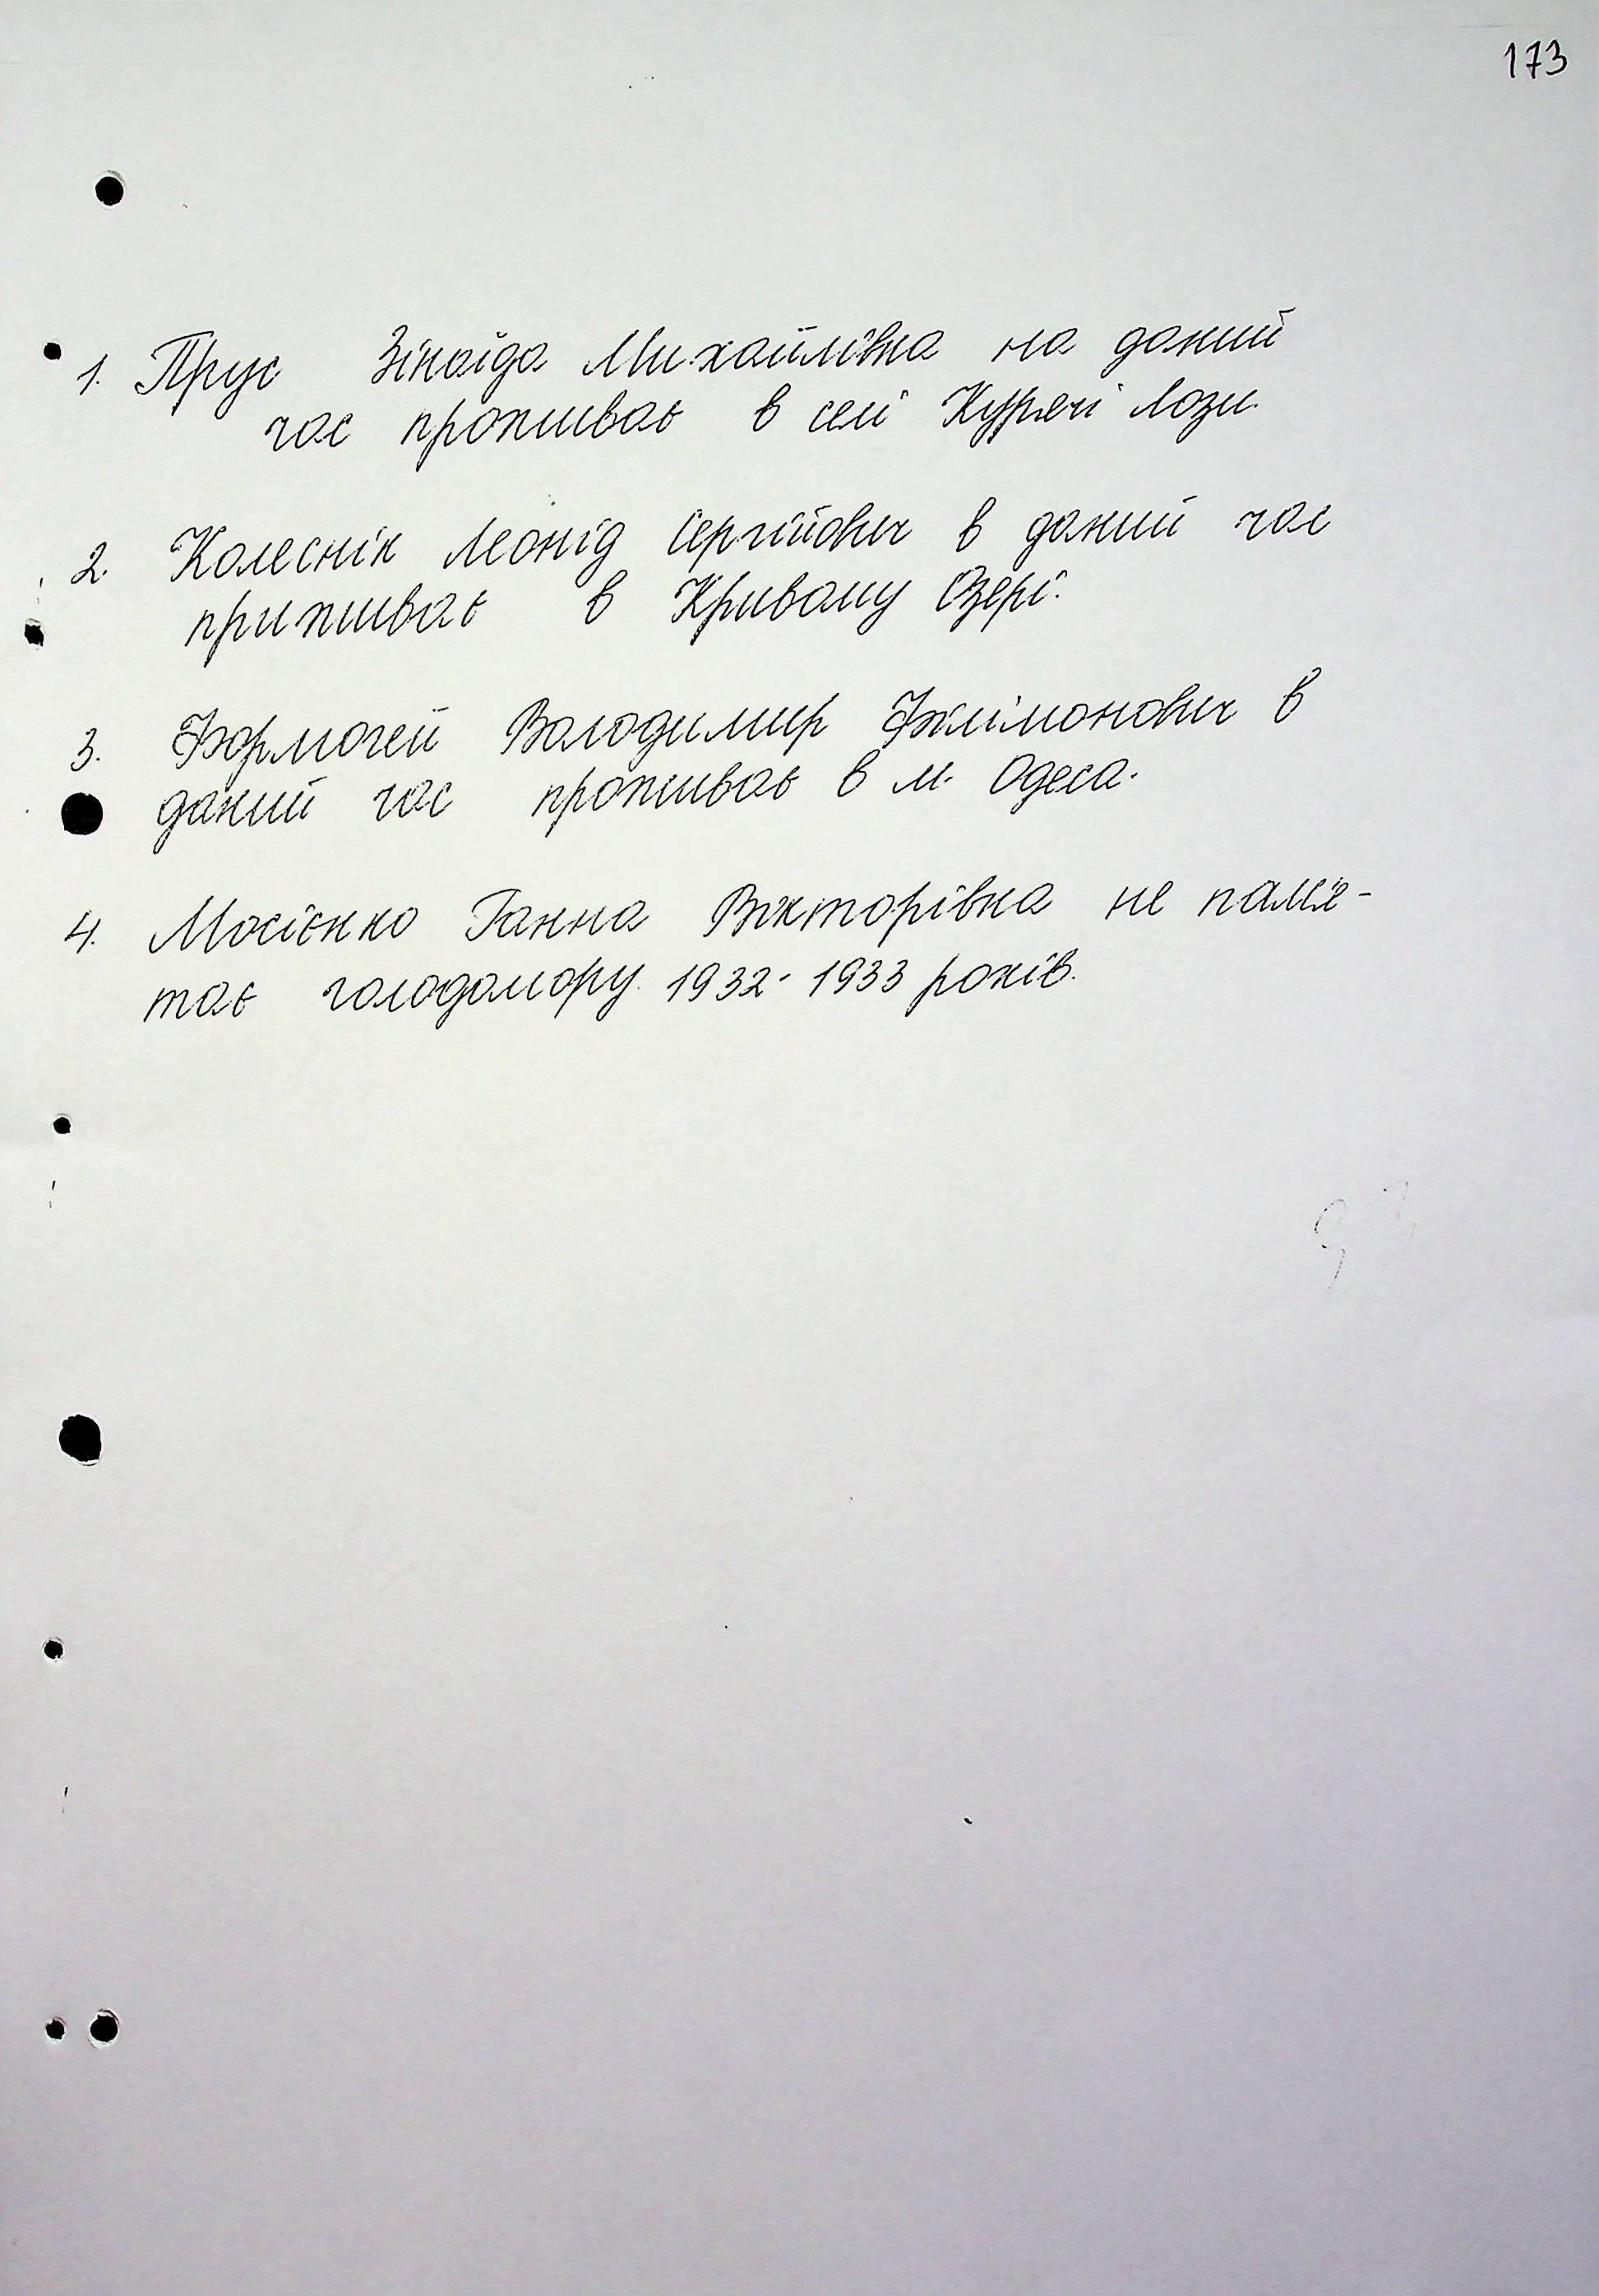 173
1. Прус Зінаїда Михайлівна на даний
час проживає в селі Курячі Лози.
2. Колеснік Леонід Сергійович в даний час
приживає в Кривому Озері.
3. Володимир в
даний час проживає в м. Одеса.
4. Мосієнко Ганна Вікторівна не пам'я-
тає голодомору 1932-1933 років.